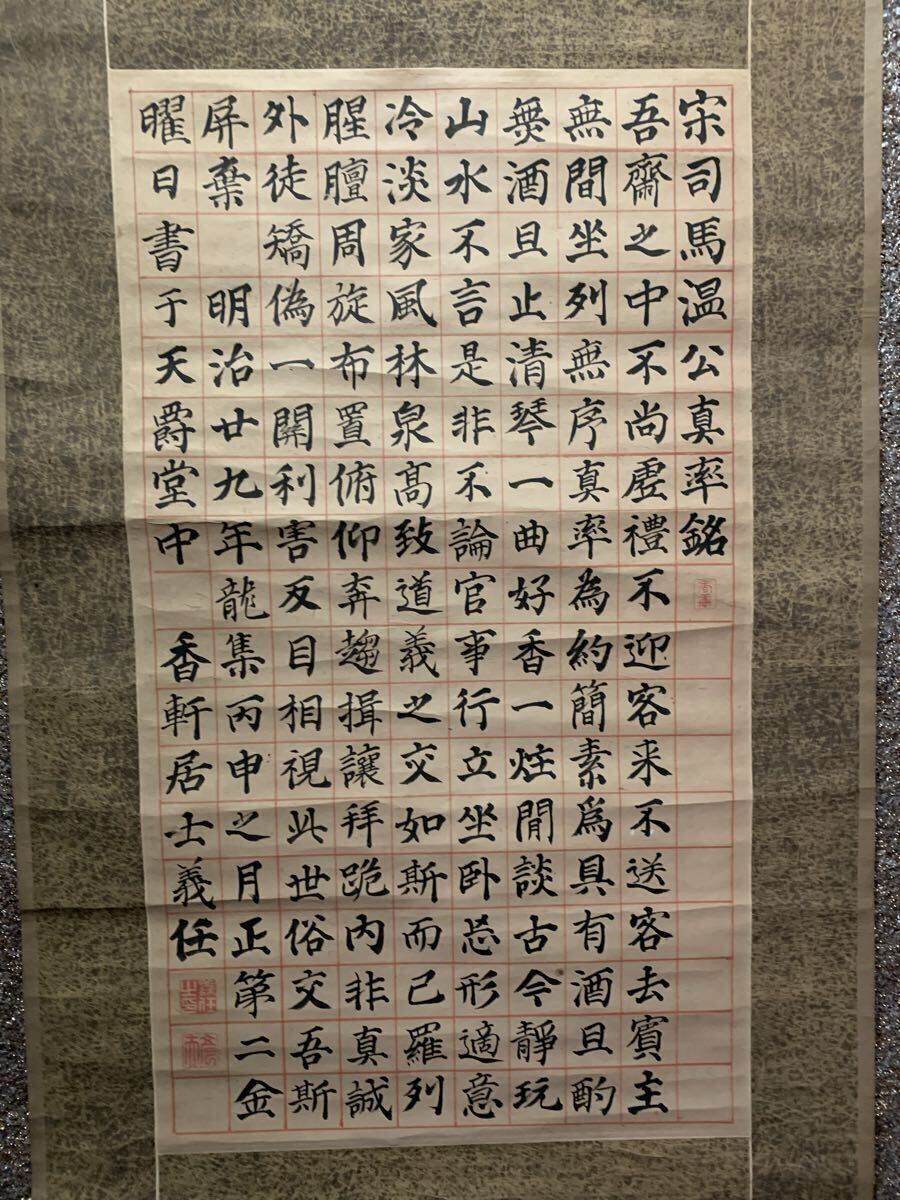 宋司馬温公真率銘
吾齋之中不尚虛禮不迎客来不送客去賓主
無間坐列無序真率為約簡素爲具有酒且酌
無酒且止清琴一曲好香一炷閒談古今靜玩
山水不言是非不論官事行立坐卧忘形適意
冷淡家風林泉高致道義之交如斯而已羅列
腥膻周旋布置俯仰奔趨揖讓拜跪内非真誠
外徒矯偽一關利害反目相視此世俗交吾斯
屏棄 明治廿九年龍集丙申之月正第二金
曜日書于天爵堂中 香軒居士義任